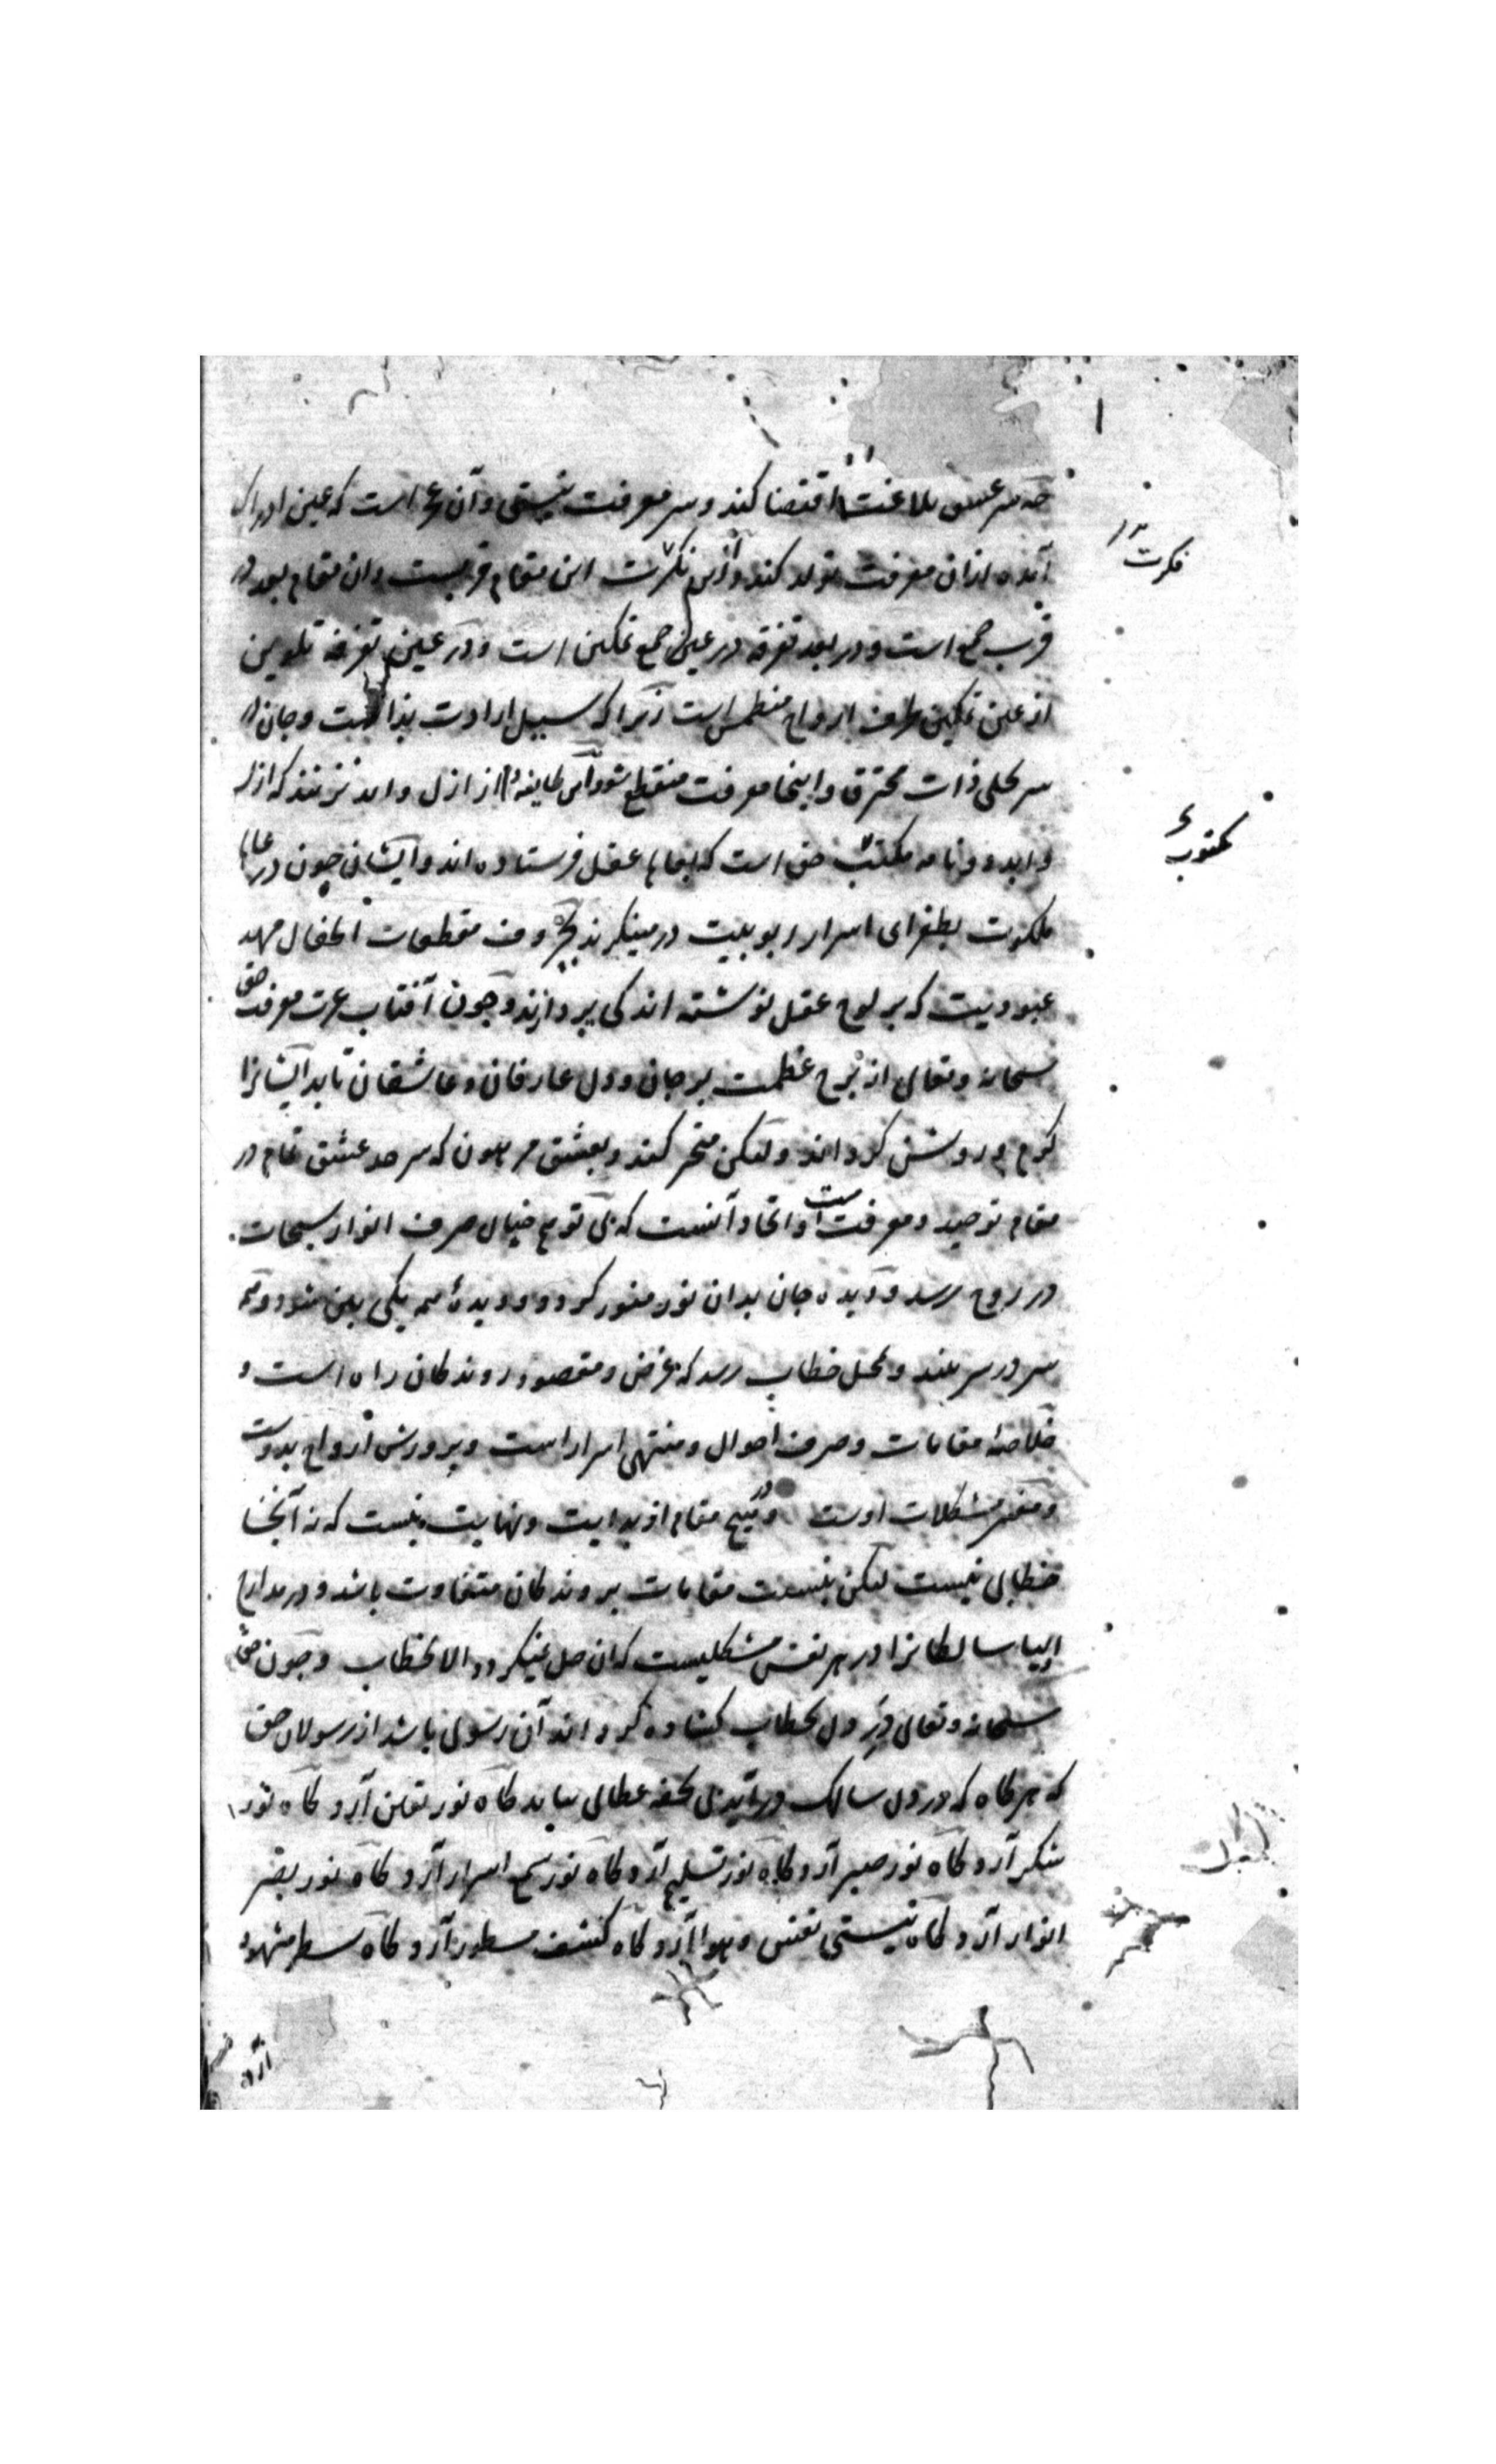 چه سر عشق بلاغت اقتضا کند و سر معرفت نیستی و آن عجز است که عین ادراک
آمده ازان معرفت تولد کند و ازین نکرت این مقام قربست وان مقام بعد در
قرب جمع است و در بعد تفرقه در عین جمع تمکین است و در عین تفرقه تلوین
از عین تمکین طرف ارواح منطمس است زیراکه سبیل ارادت بذات است و جان در
سر تجلی ذات محترق و اینجا معرفت منقطع شود این طایفه از ازل و ابد نترسند که ازل
و ابد دو نامه مکتوب حق است که بعقل فرستاده اند و ایشان چون در
ملکوت بطغرای اسرار ربوبیت درمینکرند بحروف مقطعات اطفال مهد
عبودیت که بر لوح عقل نوشته اند کی پردازند و چون آفتاب عزت معرفت حق
سبحانه و تعالی از برج عظمت بر جان و دل عارفان و عاشقان تابد ایشانرا
کرم و روشن کرداند و لیکن متحیر کند و بعشق مرهون که سرحد عشق تمام در
مقام توحید و معرفت است و اتحاد آنست که بی توهم خیال صرف انوار سبحات
در روح رسد و دیده جان بدان نور منور کردد و دو دیده همه یکی بین شود و همه
سر در سر بیند و محل خطاب رسد که غرض و مقصود روندکان راه است و
خلاصهٔ مقامات و صرف احوال و منتهی اسرار است و پرورش ارواح بدوست
و مفسر مشکلات اوست و در هیچ مقام از بدایت و نهایت نیست که نه آنجا
خطابی نیست لیکن بنسبت مقامات بروندکان متفاوت باشد و در مدارج
انبیا سالکانرا در هر نفس مشکلیست که ان حل نمیکردد الا بخطاب و چون حق
سبحانه و تعالی در دل بخطاب کشاده کرداند آن رسولی باشد از رسولان حق
که هر کاه که در دل سالک در آید بی تحفه عطایی نیاید کاه نور یقین آرد کاه نور
شکر آرد کاه نور صبر آرد کاه نور تسلیم آرد کاه نور سمع اسرار آرد کاه نور بصر
انوار آرد کاه نیستی نفس و هوا آرد کاه کشف مسطور آرد کاه سطر مشهود
آرد
فکرت
مکتوب